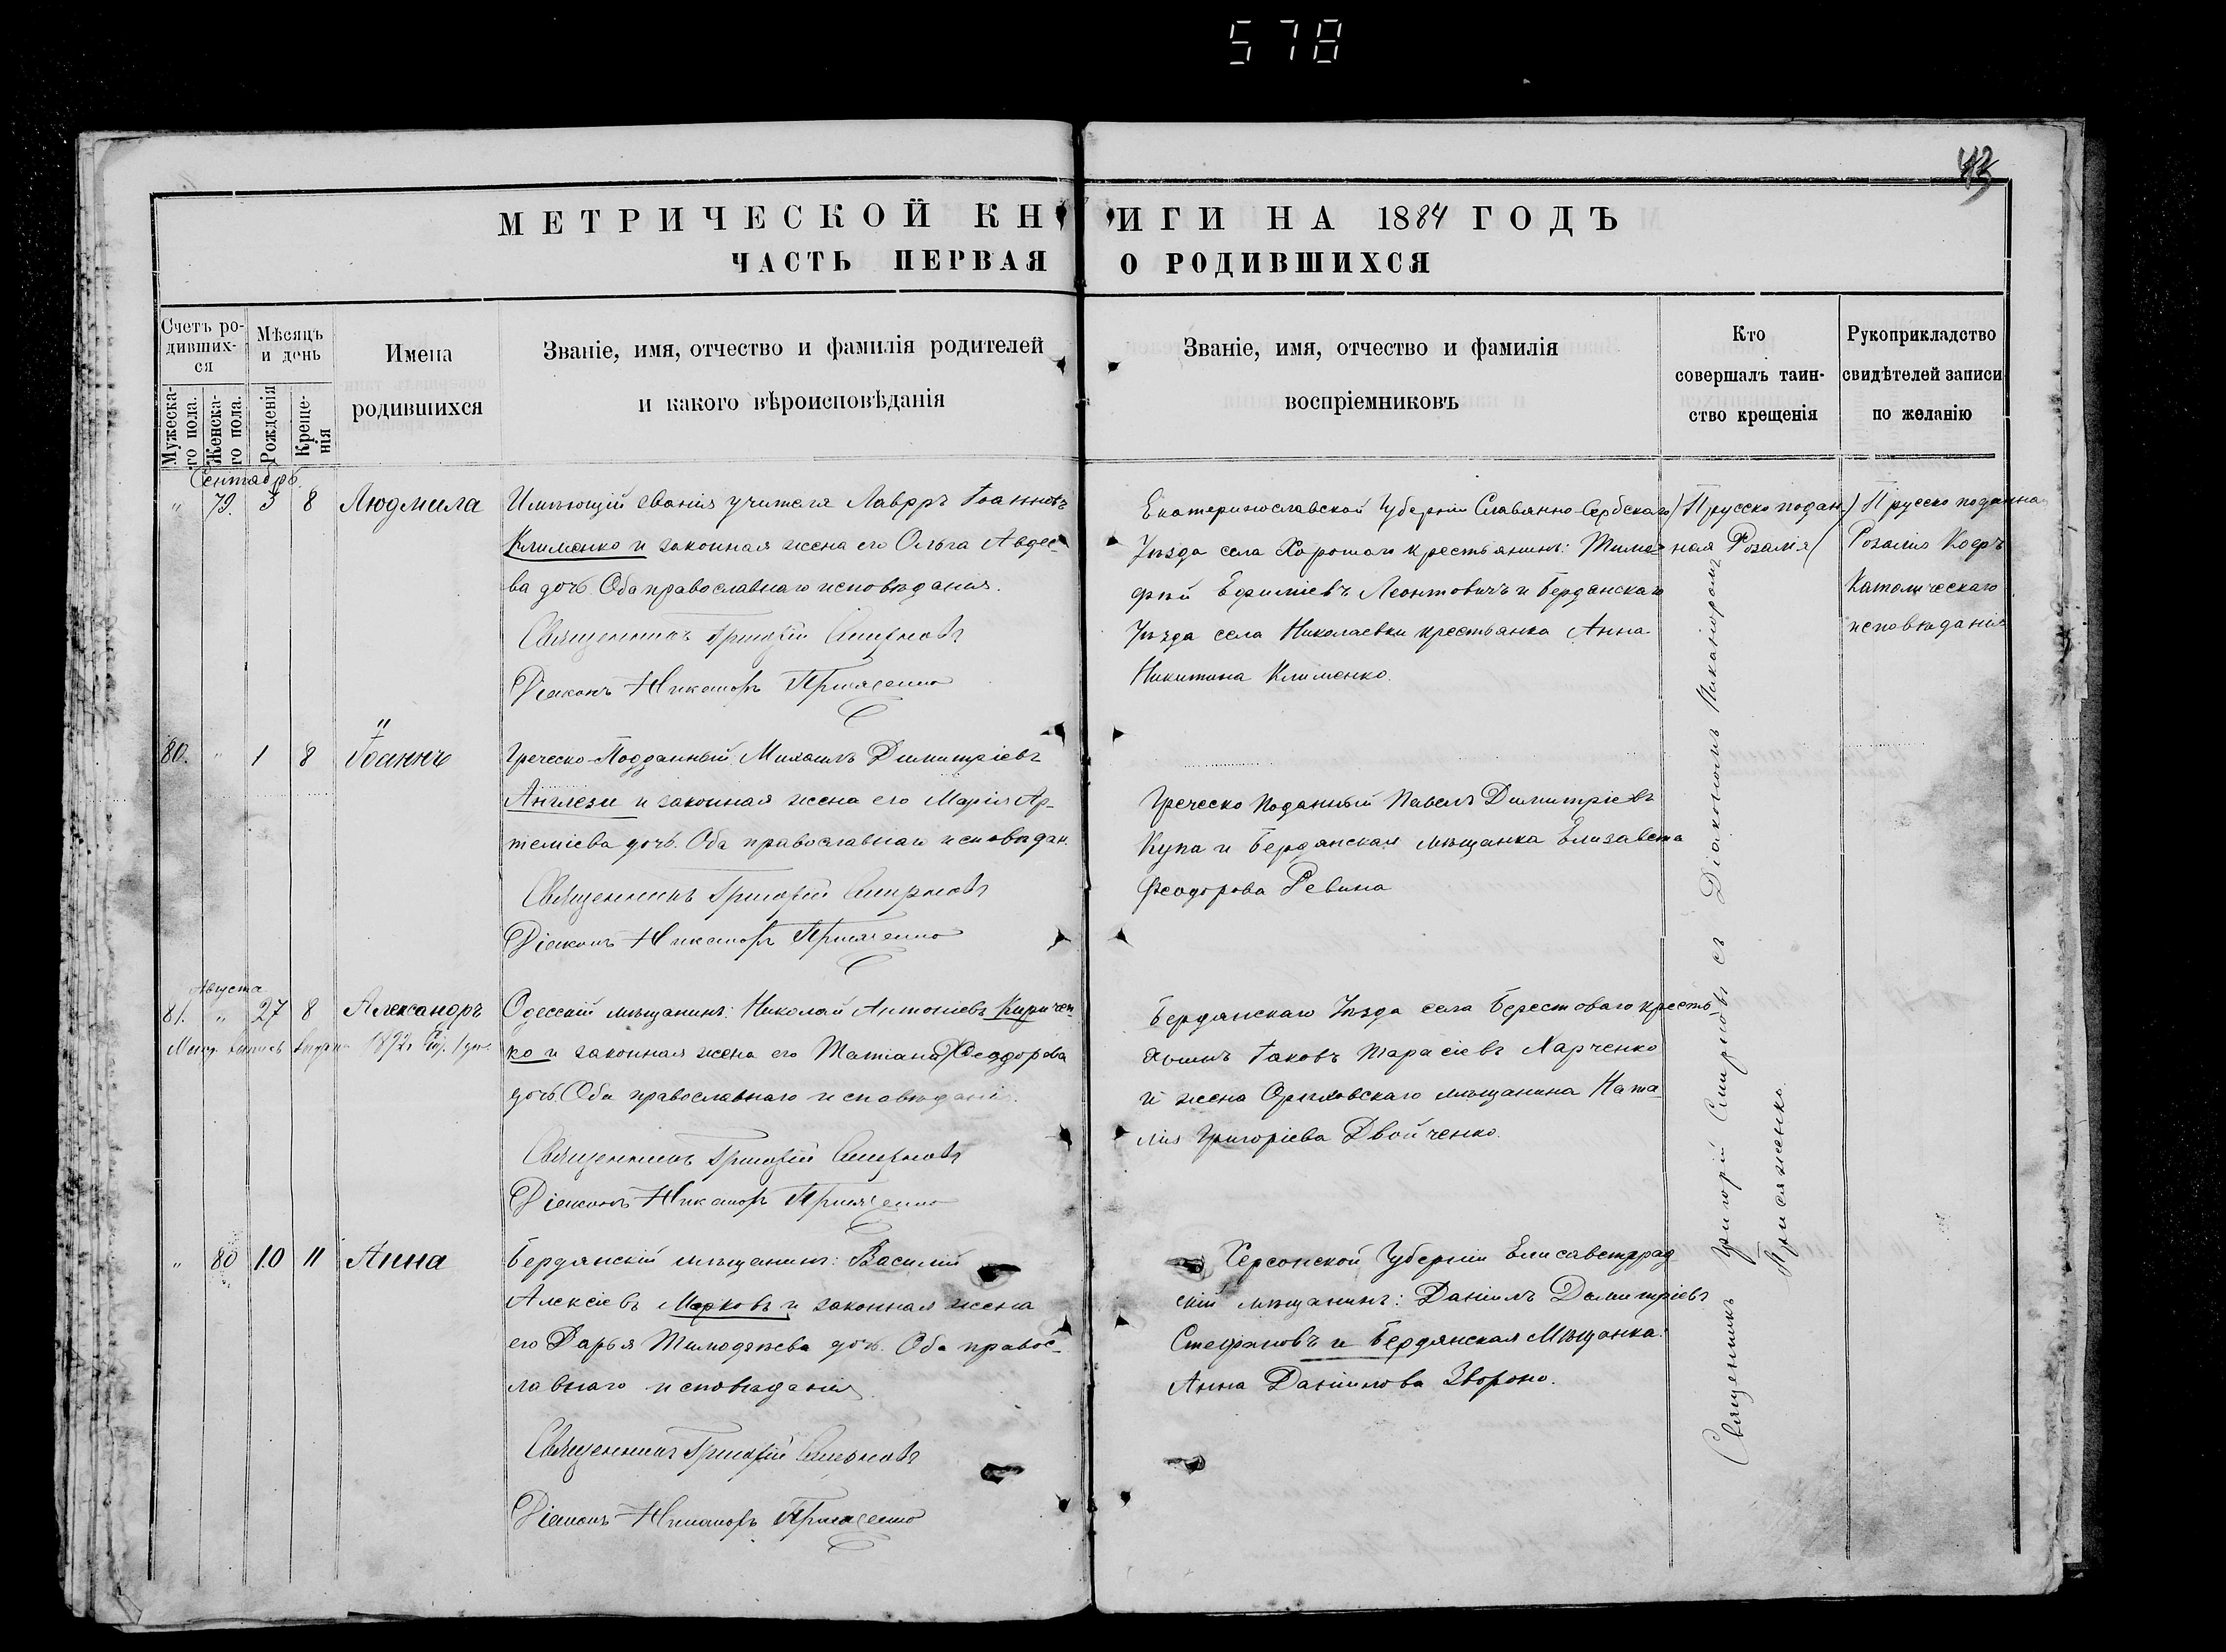 578
43
МЕТРИЧЕСКОЙ КНИГИ НА 1884 ГОДЪ
ЧАСТЬ ПЕРВАЯ О РОДИВШИХСЯ
Счетъ ро-
дивших-
ся
Мужеска-
го пола.
Женска-
го пола.
Мѣсяцъ
и день
Рожденія
Креще-
нія
Имена
родившихся
Званіе, имя, отчество и фамилія родителей
и какого вѣроисповѣданія
Званіе, имя, отчество и фамилія
воспріемниковъ
Кто
совершалъ таин-
ство крещенія
Рукоприкладство
свидѣтелей записи
по желанію
Сентябрь.
" 79. 3 8 Людмила
Имѣющій званія учителя Лавръ Іоанновъ
Клименко и законная жена его Ольга Авдее-
ва дочь. Оба православнаго исповѣданія.
Священникъ Григорій Смирновъ
Діаконъ Никаноръ Присяженко
Екатеринославской Губерніи Славянно-Сербскаго
Уѣзда села Хорошаго крестьянинъ: Тимо-
фей Ефиміевъ Леонтовичъ и Бердянскаго
Уѣзда села Николаевки крестьянка Анна
Никитина Клименко.
(Прусско подан-
ная Розалія)
Прусско поданная
Розалія
Католическаго
исповѣданія
80. " 1 8 Іоаннъ
Греческо-Подданный Михаилъ Димитріевъ
Англези и законная жена его Марія Ар-
теміева дочь. Оба православнаго исповѣдан.
Священникъ Григорій Смирновъ
Діаконъ Никаноръ Присяженко
Греческо поданный Павелъ Димитріевъ
Купа и Бердянская мѣщанка Елизавета
Феодорова Ревина
Августа
81. " 27 8 Александръ
1892
Одесскій мѣщанинъ: Николай Антоніевъ Киричен-
ко и законная жена его Татіана Феодорова
дочь. Оба православнаго исповѣданія.
Священникъ Григорій Смирновъ
Діаконъ Никаноръ Присяженко
Бердянскаго Уѣзда села Берестоваго кресть-
янинъ Іаковъ Тарасіевъ Харченко
и жена Орѣховскаго мѣщанина Ната-
лія Григоріева Двойченко.
" 80 10 11 Анна
Бердянскій мѣщанинъ: Василій
Алексіевъ Марковъ и законная жена
его Дарья Тимофѣева дочь. Оба правос-
лавнаго исповѣданія.
Священникъ Григорій Смирновъ
Діаконъ Никаноръ Присяженко
Херсонской Губерніи Елисаветград
скій мѣщанинъ: Даніилъ Димитріевъ
Стефановъ и Бердянская Мѣщанка:
Анна Даніилова Звороно.
Священникъ Григорій Смирновъ съ Діакономъ Никаноромъ
Присяженко.